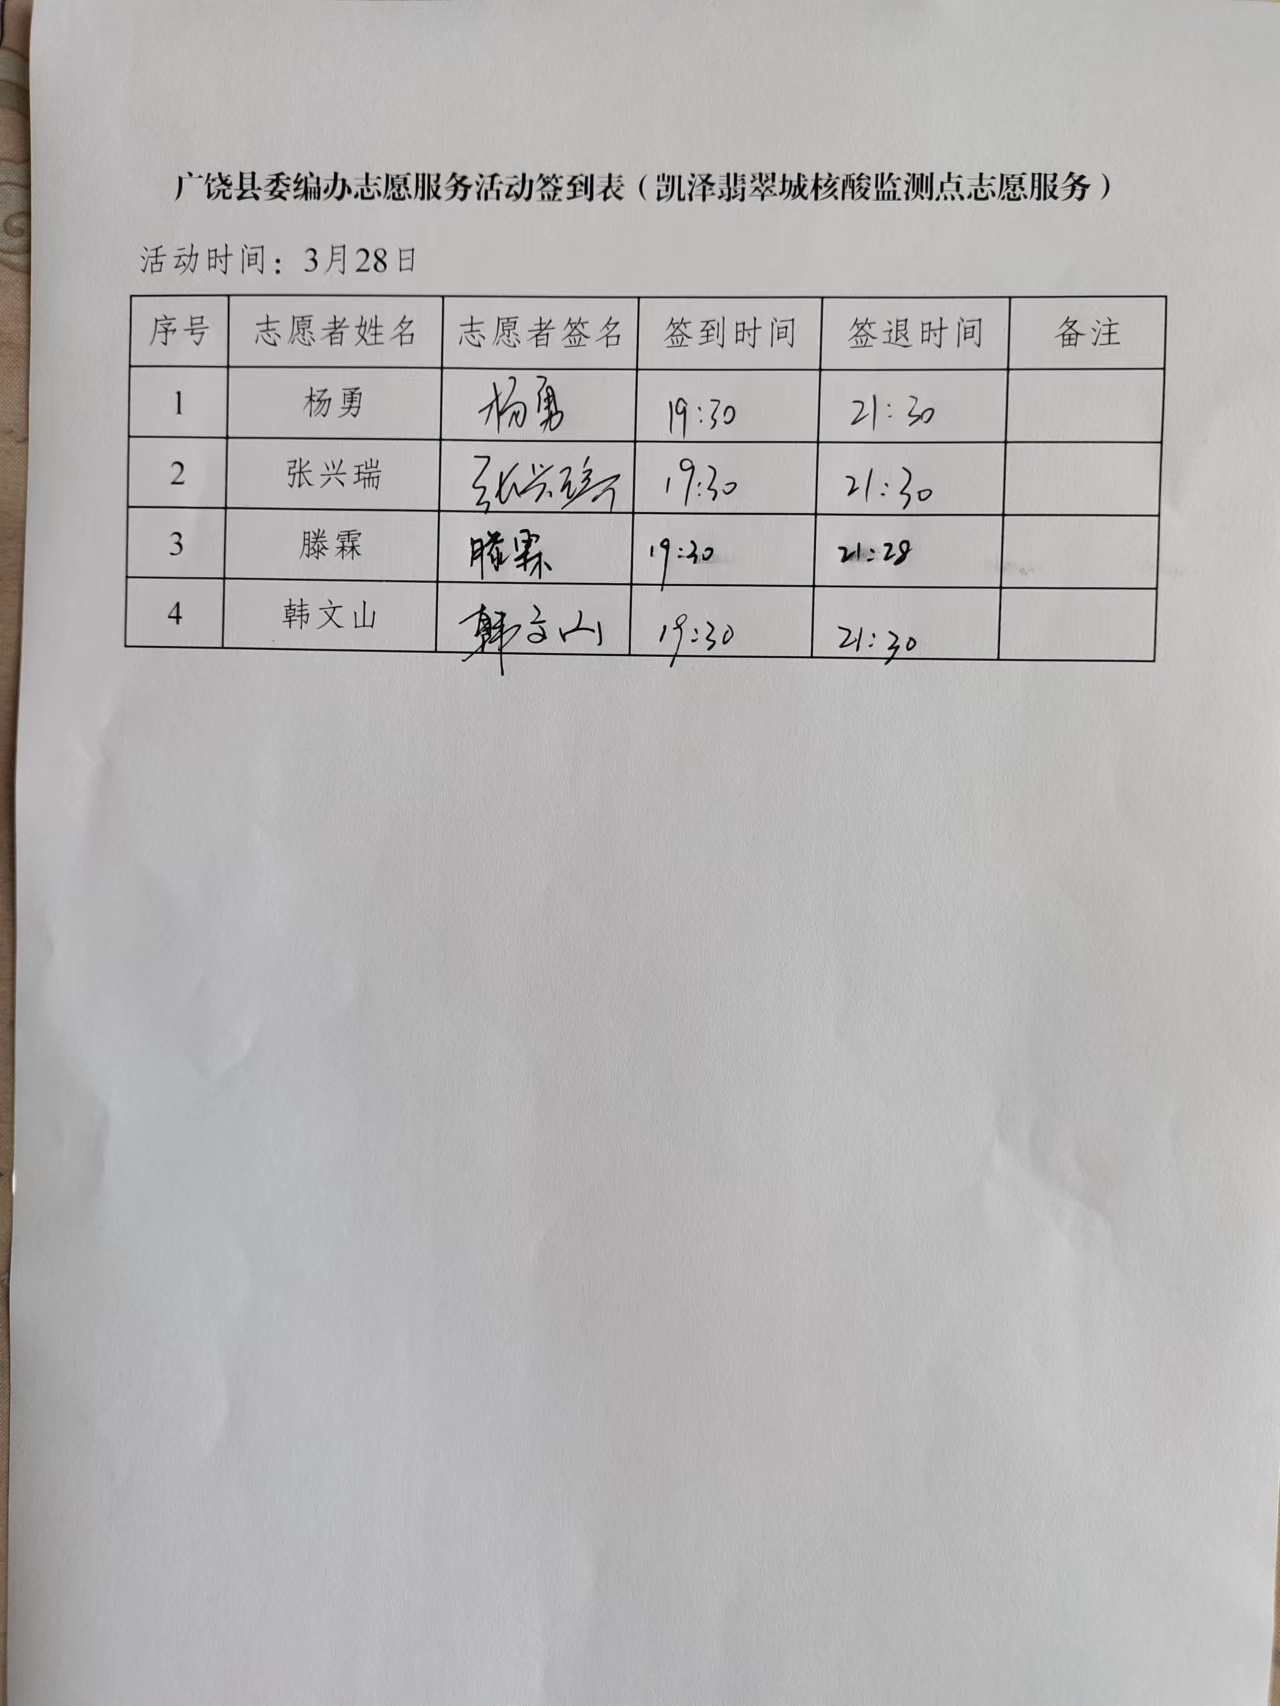 广饶县委编办志愿服务活动签到表（凯泽翡翠城核酸监测点志愿服务）
活动时间：3月28日
序号 志愿者姓名 志愿者签名 签到时间 签退时间 备注
1 杨勇 杨勇 19:30 21:30
2 张兴瑞 张兴瑞 19:30 21:30
3 滕霖 滕霖 19:30 21:28
4 韩文山 韩文山 19:30 21:30